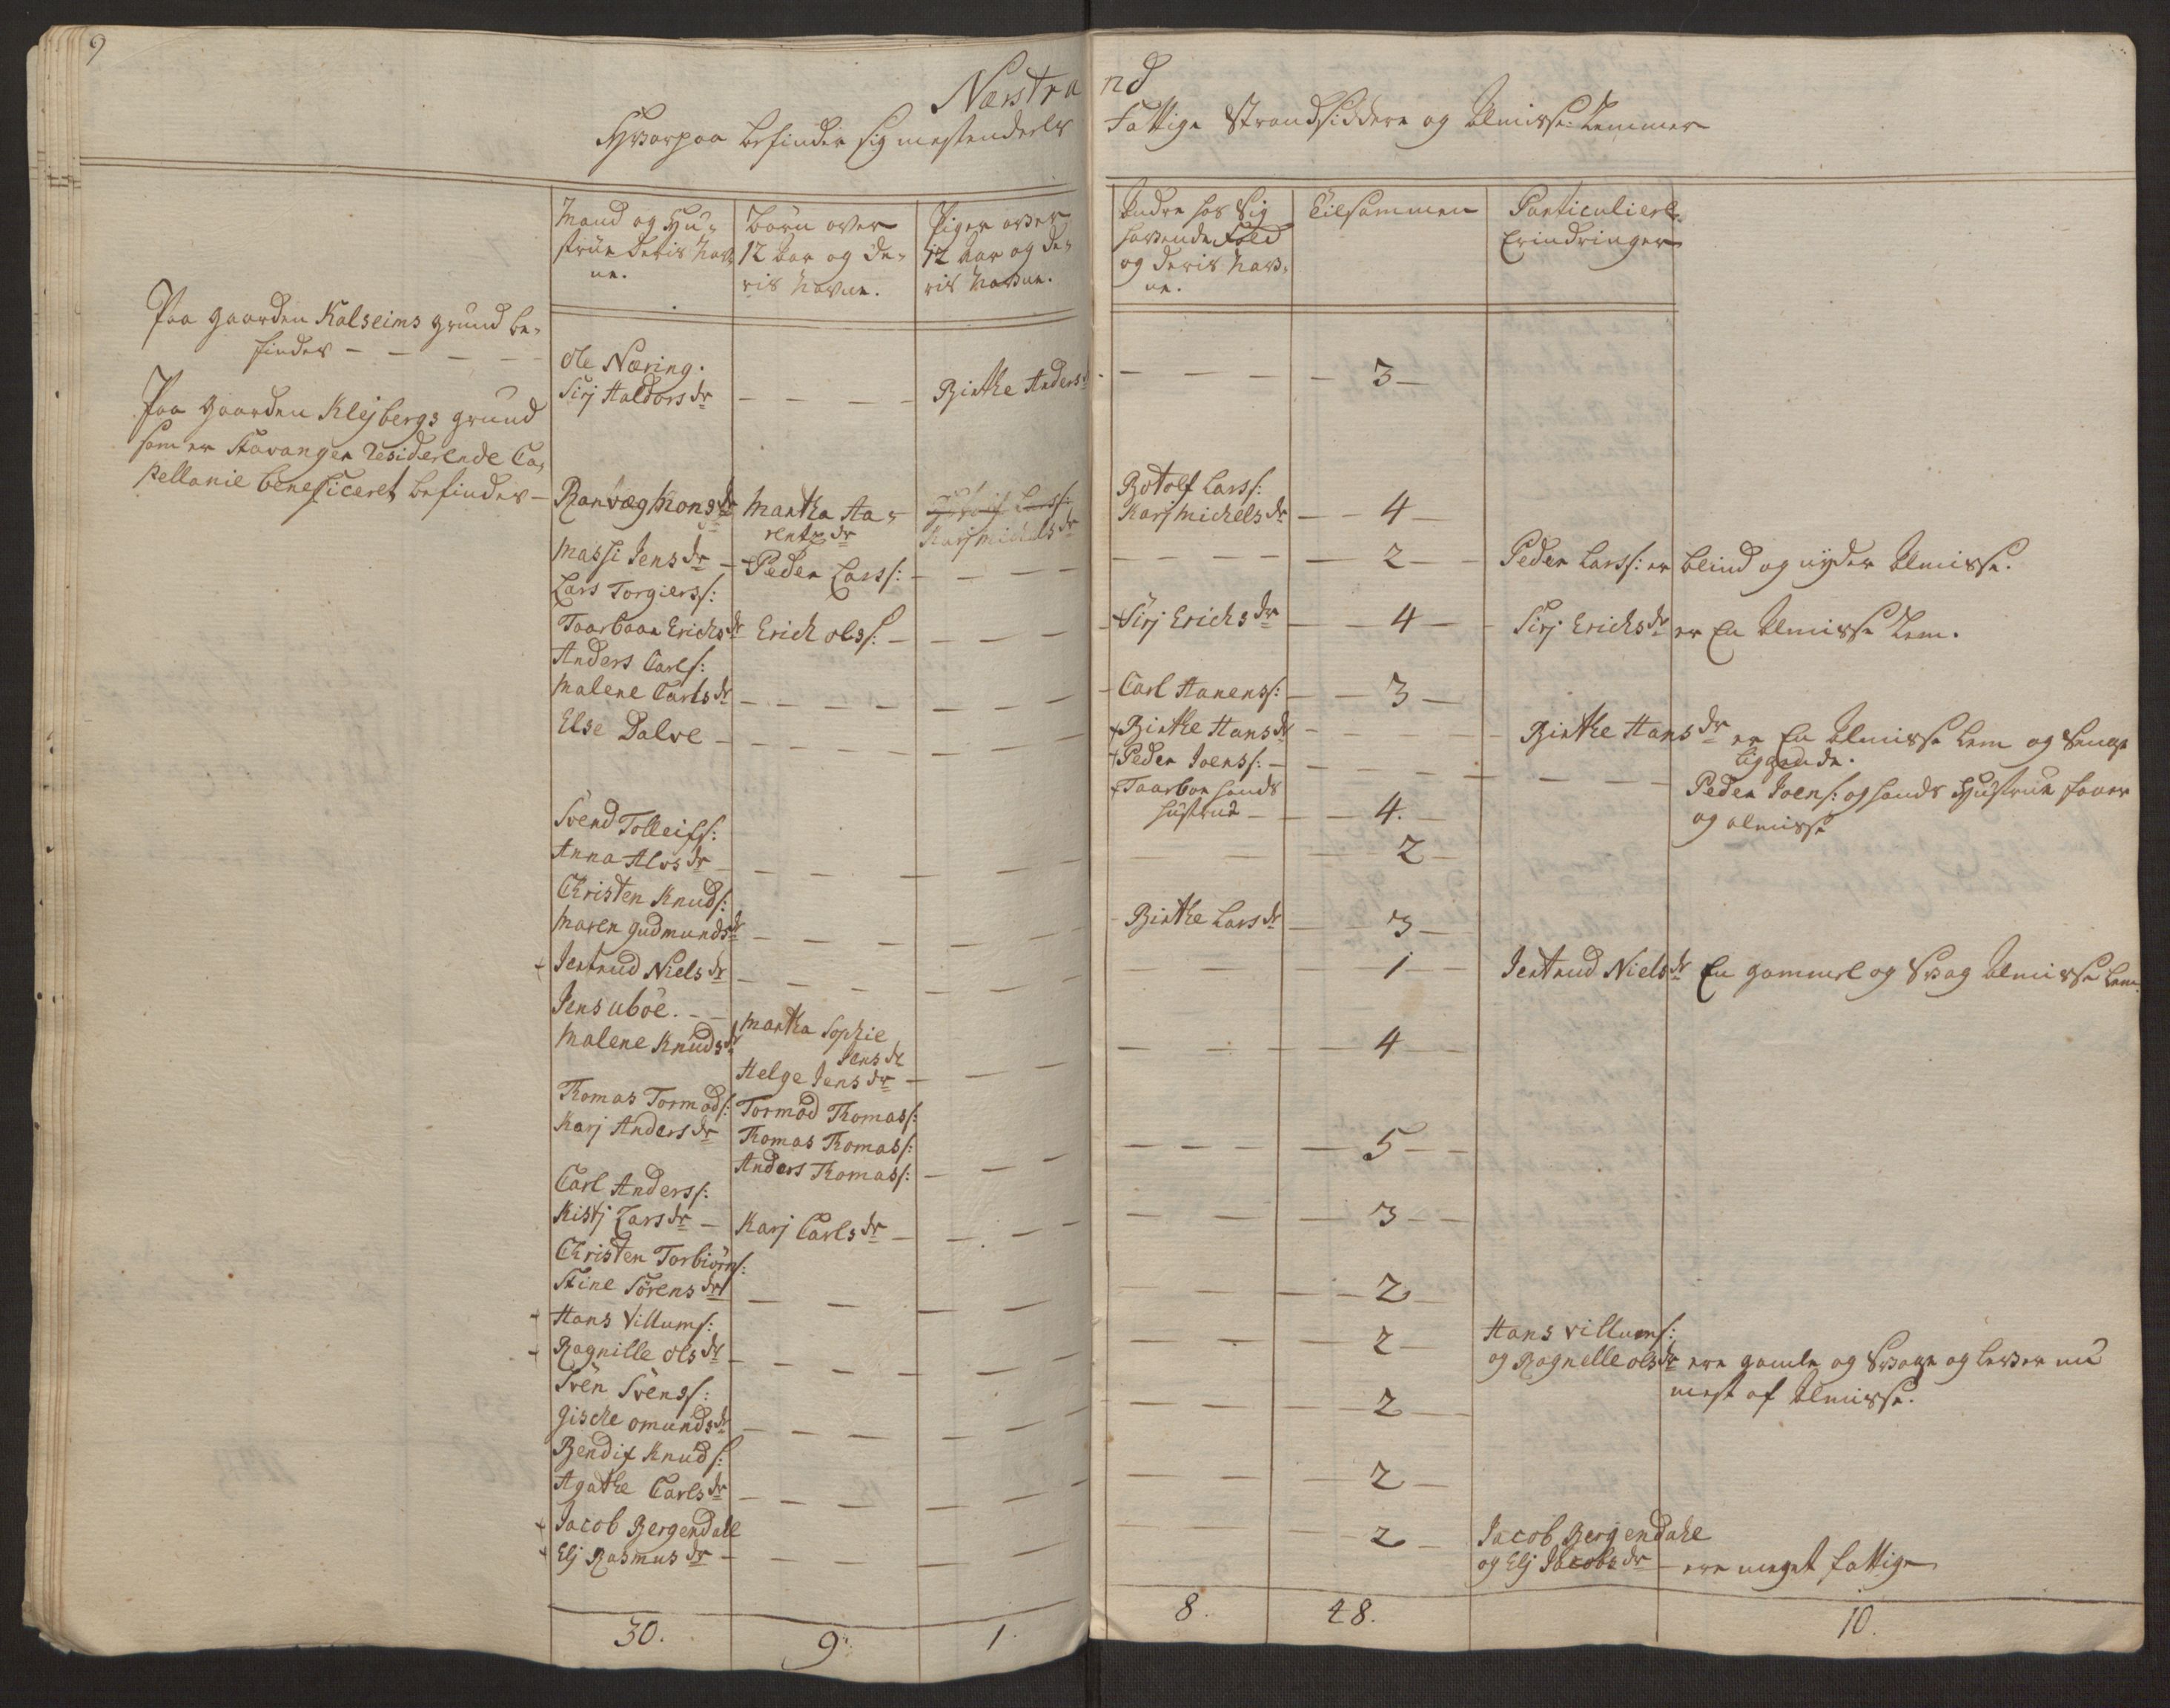 9
Næstrand
Hvorpaa befinder sig mestendeels Fattige Strandsiddere og Almisse Lemmer
Mand og Hu-
strue deris nav-
ne.
Börn over
12 Aar og de-
ris navne.
Piger over
12 Aar og de-
ris navne.
Andre hos Sig
havende Folk
og deris nav-
ne.
Tilsammen
Particuliere
Erindringer
Paa gaarden Kalseims grund be-
findes - - - -
Ole Næring.
Sirj Haldorsdr - - - - Birthe Andersd - - - - 3 -
Paa gaarden Klejbergs grund
som er Stavanger Residerende Ca-
pellanie beneficeret befindes -
Ranvæg Monsdr
Martha Aa-
rentzdr
Karj Michelsdr
Botolf Larss:
Karj Michelsdr - - 4 -
Massi Jensdr - Peder Larss: - - - - - - - - 2 - - Peder Larss: er blind og nyder Almisse.
Lars Torgierss:
Taarboer Erichsdr Erich Olss: - - - - Sirj Erichsdr - - 4 - - Sirj Erichsdr er En Almisse Lem.
Anders Carls:
Malene Carlsdr - - - - - - - - Carl Hanens: - - 3 -
Else Dalve - - - - - - - - + Birthe Hansdr - - - Birthe Hansdr er En Almisse Lem og Senge
liggende.
+ Peder Joens: - - - - - - - -
Peder Joens: og hands Hustrue faaer
og almisse
+ Taarbor hands
hustrue - - - 4. -
Svend Tolleifs:
Anna Alvsdr - - - - - - - - - - 2 -
Christen Knuds:
Maren Gudmundsdr - - - - - - - Birthe Larsdr - - 3 -
+ Jertrud Nielsdr - - - - - - - - - 1 - - Jertrud Nielsdr En gammel og Svag Almisse Lem.
Jens Uböe. - -
Malene Knudsdr
Martha Sophie
Jensdr
Helge Jensdr - - - - - - - 4 - -
Thomas Tormods:
Karj Andersdr
Tormod Thomass:
Thomas Thomass:
Anders Thomass: - - - - - - - 5 - -
Carl Anderss:
Kistj Larsdr - Karj Carlsdr - - - - - - - 3 - -
Christen Torbiörns:
Stine Sörensdr - - - - - - - - 2 -
+ Hans Villums:
+ Ragnille Olsdr - - - - - - - - - - 2 -
Hans Villums:
og Ragnelle Olsdr ere gamle og Svage og lever nu
mest af Almisse.
Sven Svens:
Gische Omundsdr - - - - - - - - - - 2 -
Bendix Knuds:
Agathe Carlsdr - - - - - - - - - 2 -
+ Jacob Bergendahl
+ Elj Rasmusdr - - - - - - - - - 2 -
Jacob Bergendahl
og Elj Jacobsdr - ere meget fattige
30. 9. 1. 8. 48. 10.